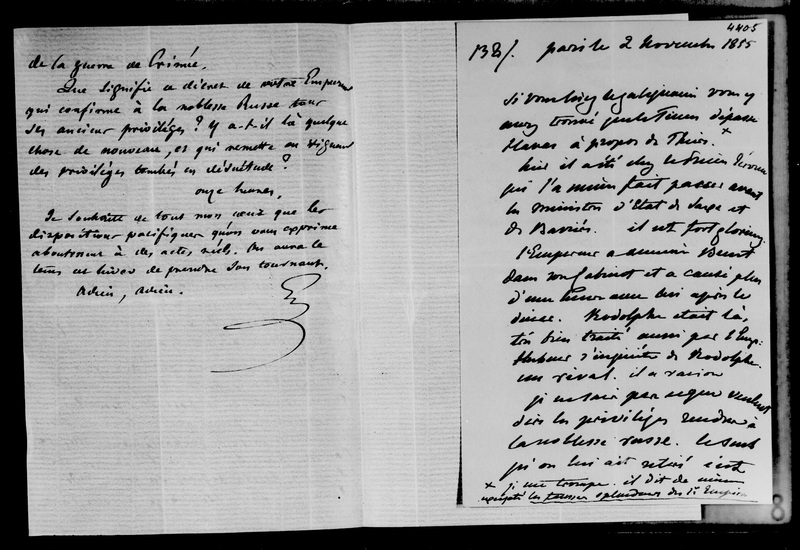 de la guerre de Crimée.
Que signifie ce décret de votre Empereur
qui confirme à la noblesse Russe tous
ses anciens privilèges? Y a-t-il là quelque
chose de nouveau, et qui remette en vigueur
des privilèges tombés en désuétude?
onze heures,
Je souhaite de tout mon coeur que les
dispositions pacifiques qu'on vous exprime
aboutissent à des actes réels. On aura le
tems cet hiver de prendre son tournant.
Adieu, Adieu.
4405
138/. Paris le 2 Novembre 1855
Si vous lisez le galignani vous y
avez trouvé que le Times dépasse
Havas à propos de Thiers. x
hier il a été chez le Prince Jérôme
qui l'a même fait passer avant
les ministres d'Etat de Saxe et
de Bavière. il est fort glorieux.
l'Empereur a emmené Beust
dans son Cabinet et a causé plus
d'une heure avec lui après le
diner. Rodolphe était là,
très bien traité aussi par l'Emp:
Hubner s'inquiète de Rodolphe.
un rival. il a raison
je ne sais pas ce que veulent
dire les privilèges rendus à
la noblesse russe. le seul
qu'on lui ait retiré c'est
x je me trompe. il dit de même
excepté les fausses splendeurs du 1r Empire